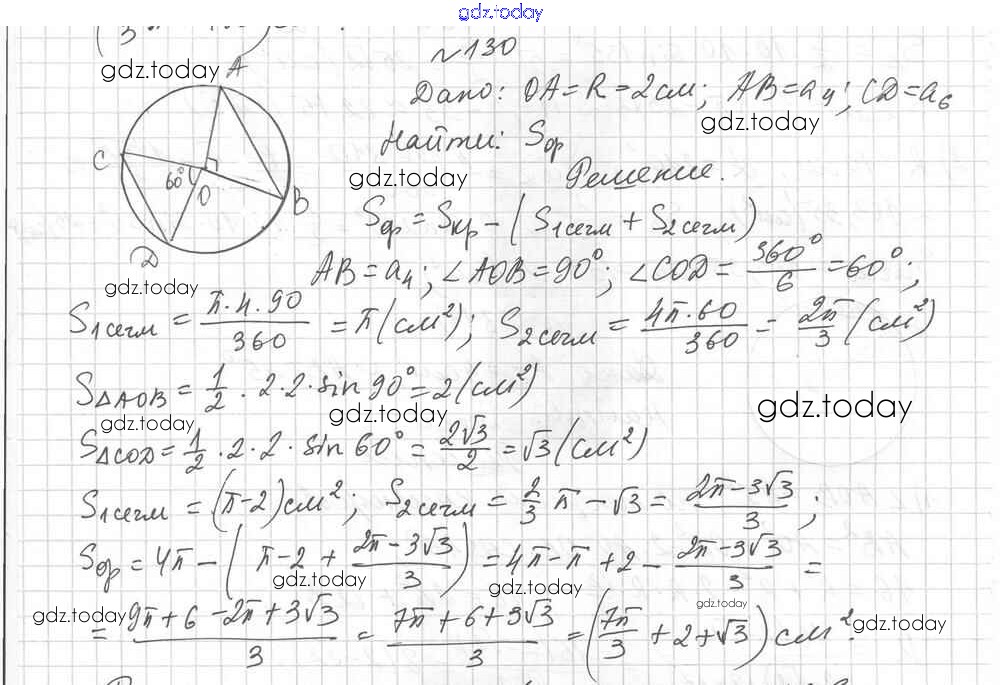 gdz.today
№130
gdz.today A
Дано: OA = R = 2 см; AB = a₄; CD = a₆
gdz.today
Найти: Sф
C 60° O B D
gdz.today
Решение.
Sф = Sкр - (S₁сегм + S₂сегм)
AB = a₄; ∠AOB = 90°; ∠COD = 360°/6 = 60°;
gdz.today
S₁сегм = π·4·90/360 = π (см²); S₂сегм = 4π·60/360 = 2π/3 (см²)
S△AOB = 1/2 · 2·2·sin 90° = 2 (см²)
gdz.today gdz.today gdz.today
S△COD = 1/2 · 2·2·sin 60° = 2√3/2 = √3 (см²)
S₁сегм = (π-2) см²; S₂сегм = 2/3 π - √3 = 2π-3√3/3;
Sф = 4π - (π-2 + 2π-3√3/3) = 4π - π + 2 - 2π-3√3/3 =
gdz.today gdz.today
gdz.today gdz.today gdz.today
= 9π+6-2π+3√3/3 = 7π+6+3√3/3 = (7π/3 + 2 + √3) см².